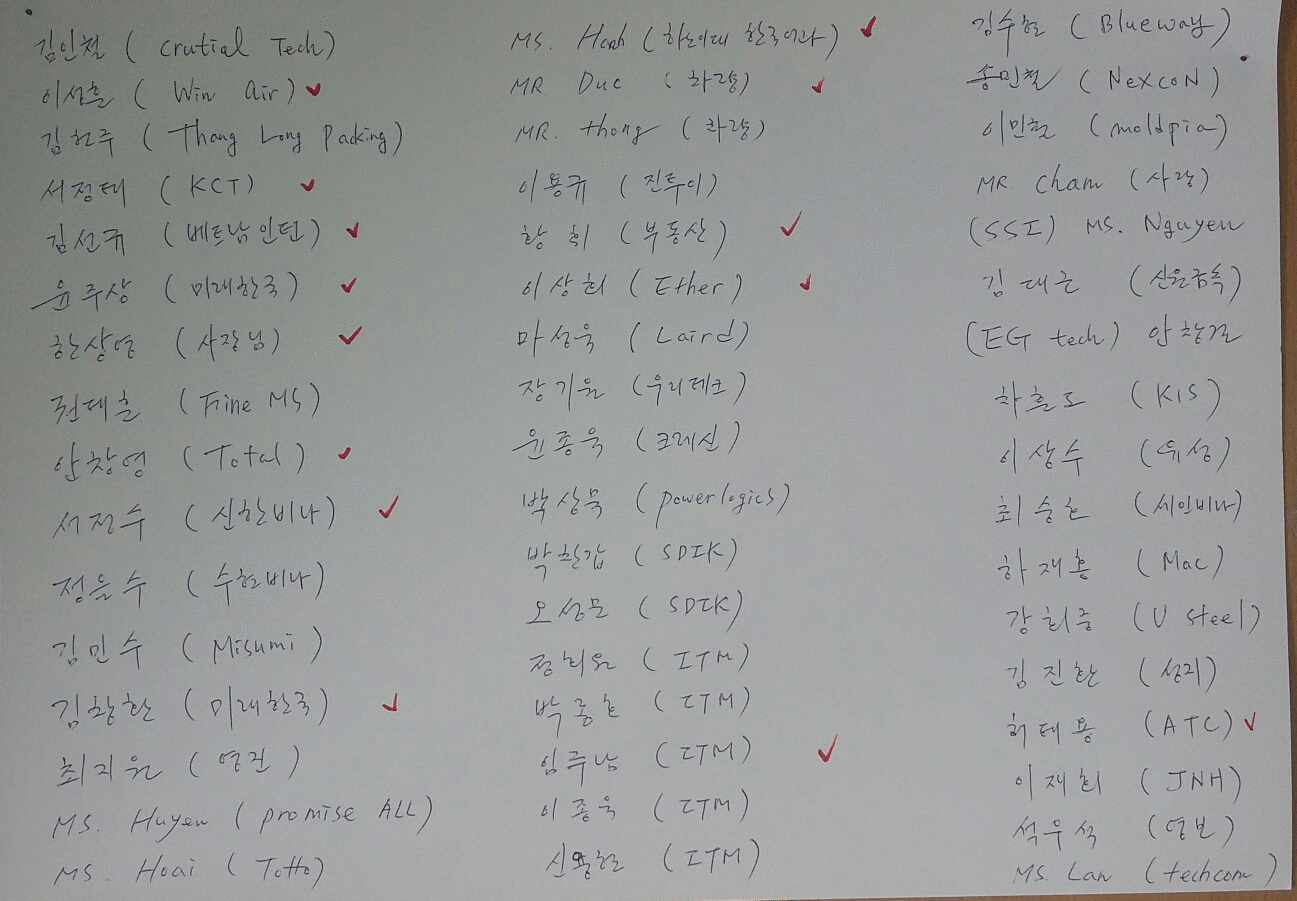 김인철 ( Crutial Tech)
이성훈 ( Win Air) ✓
김현주 ( Thang Long Packing)
서정태 ( KCT) ✓
김선규 (베트남인턴) ✓
윤주상 (미래한국) ✓
한상영 (사장님) ✓
권대훈 (Fine MS)
안창영 (Total) ✓
서진수 (신한비나) ✓
정을수 (수현비나)
김민수 (Misumi)
김창환 (미래한국) ✓
최지원 (영진)
MS. Huyen ( promise ALL)
MS. Hoai ( Totto)
MS. Hoah (하노이대 한국어과) ✓
MR Duc (차량) ✓
MR. thong (차량)
이용규 (진투이)
황희 (부동산) ✓
이상희 (Ether) ✓
마성욱 (Laird)
장기원 (우리테크)
윤종욱 (크레신)
박상묵 (powerlogics)
박찬갑 (SDIK)
오성문 (SDIK)
정희원 (ITM)
박종현 (ITM)
임주남 (ITM) ✓
이종욱 (ITM)
신용현 (ITM)
김수현 (Blueway)
송민철 (NexcoN)
이민철 (moldpia)
MR. Cham (사랑)
(SSI) MS. Nguyen
김대근 (신윤금속)
(EG tech) 안창길
차훈도 (KIS)
이상수 (유성)
최승현 (세인비나)
하재홍 (Mac)
강희중 (U steel)
김진환 (성지)
허태용 (ATC) ✓
이재희 (JNH)
석우석 (영보)
MS. Lan (techcom)